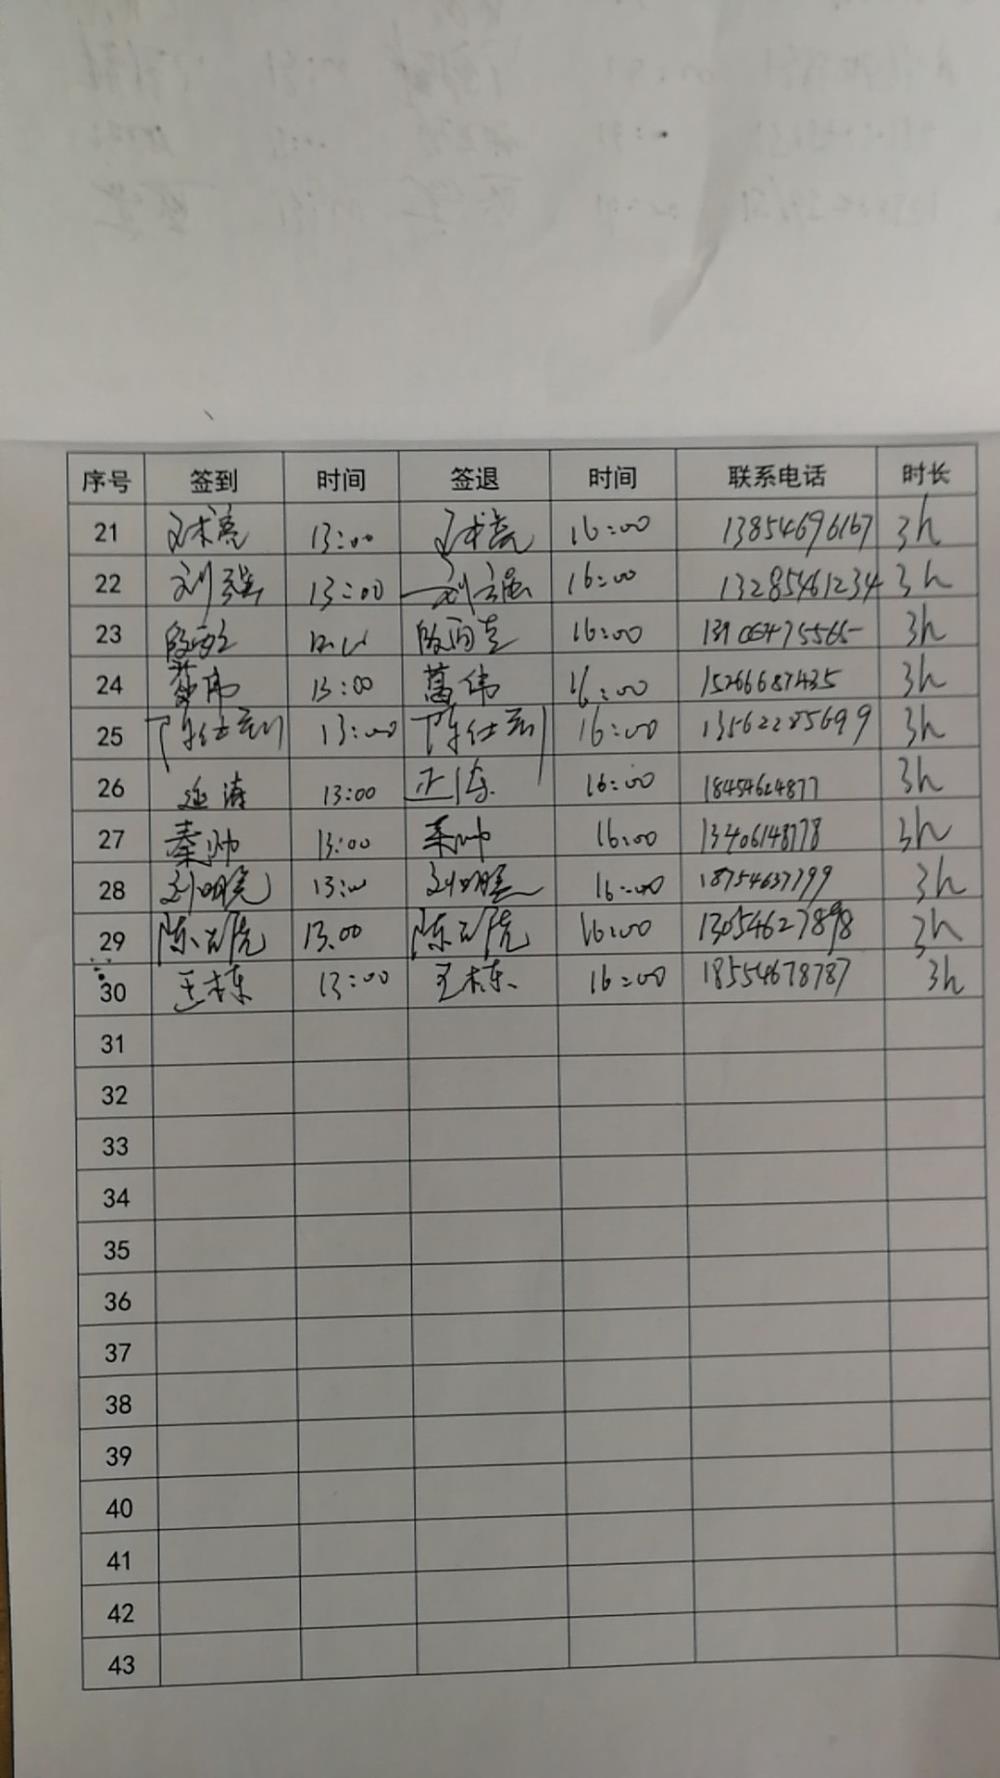 序号 签到 时间 签退 时间 联系电话 时长
21 13:00 16:00 13854696167 3h
22 刘强 13:00 刘强 16:00 13285461234 3h
23 16:00 3h
24 葛伟 13:00 葛伟 16:00 15266687435 3h
25 13:00 16:00 13562285699 3h
26 13:00 16:00 18454624877 3h
27 秦帅 13:00 秦帅 16:00 13406148778 3h
28 刘明亮 13:00 16:00 18754637799 3h
29 13.00 16:00 13054627898 3h
30 王栋 13:00 王栋 16:00 18554678787 3h
31
32
33
34
35
36
37
38
39
40
41
42
43